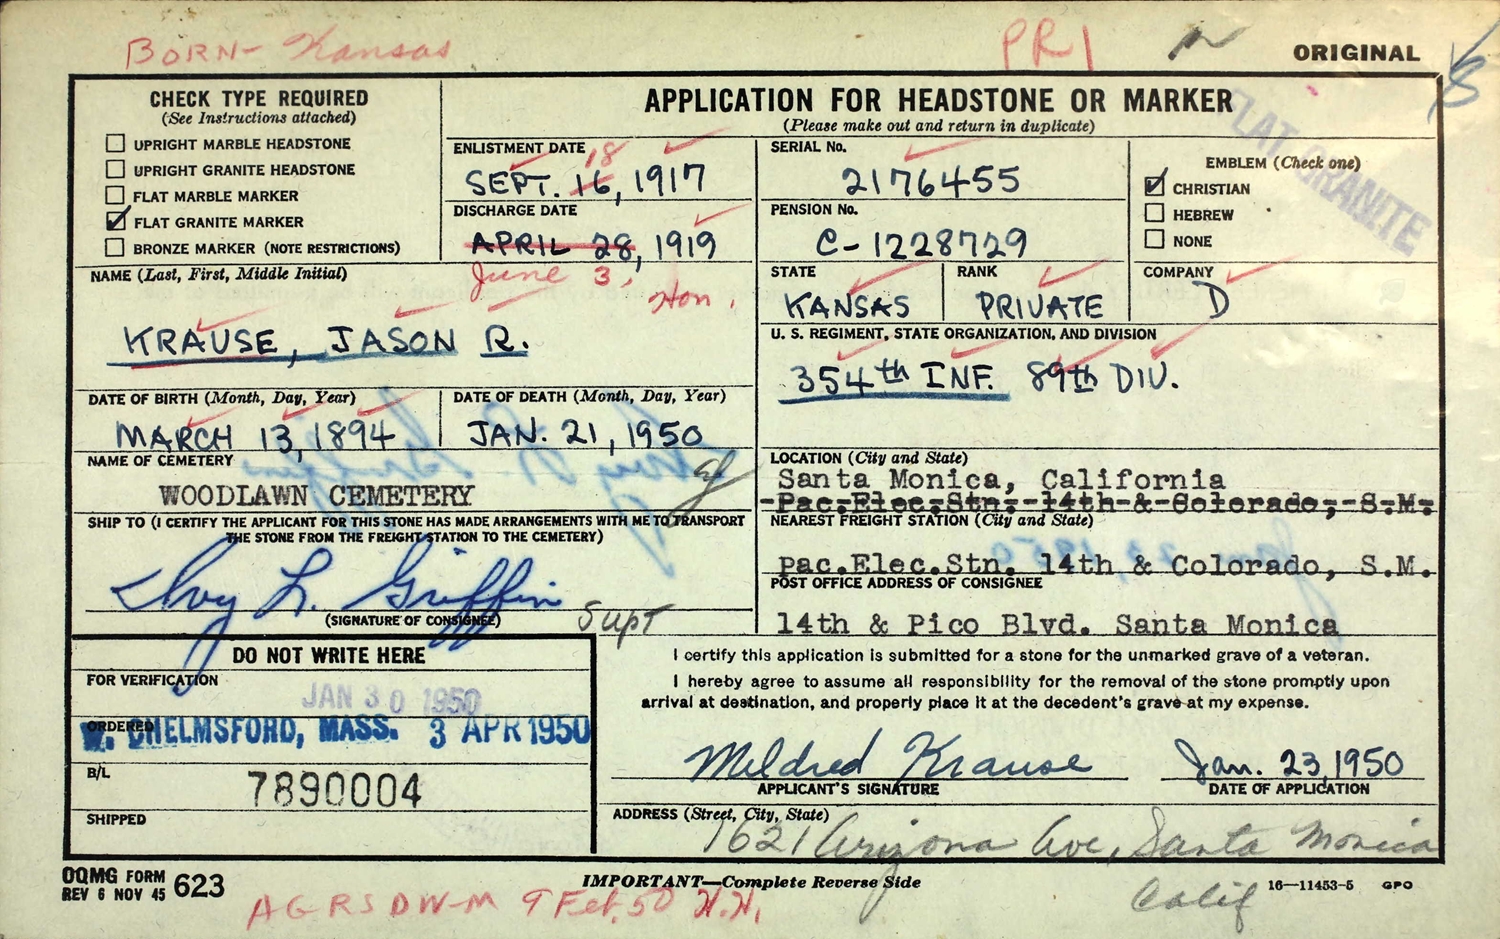 BORN- Kansas
PR1
ORIGINAL
CHECK TYPE REQUIRED
(See Instructions attached)
UPRIGHT MARBLE HEADSTONE
UPRIGHT GRANITE HEADSTONE
FLAT MARBLE MARKER
FLAT GRANITE MARKER
BRONZE MARKER (NOTE RESTRICTIONS)
APPLICATION FOR HEADSTONE OR MARKER
(Please make out and return in duplicate)
FLAT GRANITE
ENLISTMENT DATE
18
SEPT. 16, 1917
DISCHARGE DATE
APRIL 28, 1919
June 3,
Hon.
SERIAL No.
2176455
PENSION No.
C-1228729
EMBLEM (Check one)
CHRISTIAN
HEBREW
NONE
NAME (Last, First, Middle Initial)
KRAUSE, JASON R.
STATE
KANSAS
RANK
PRIVATE
COMPANY
D
U. S. REGIMENT, STATE ORGANIZATION, AND DIVISION
354th INF. 89th DIV.
DATE OF BIRTH (Month, Day, Year)
MARCH 13, 1894
DATE OF DEATH (Month, Day, Year)
JAN. 21, 1950
NAME OF CEMETERY
WOODLAWN CEMETERY
LOCATION (City and State)
Santa Monica, California
Pac.Elec.Stn. 14th & Colorado, S.M.
SHIP TO (I CERTIFY THE APPLICANT FOR THIS STONE HAS MADE ARRANGEMENTS WITH ME TO TRANSPORT
THE STONE FROM THE FREIGHT STATION TO THE CEMETERY)
Ivy L. Griffin
Supt
(SIGNATURE OF CONSIGNEE)
NEAREST FREIGHT STATION (City and State)
pac.Elec.Stn. 14th & Colorado, S.M.
POST OFFICE ADDRESS OF CONSIGNEE
14th & Pico Blvd. Santa Monica
DO NOT WRITE HERE
FOR VERIFICATION
JAN 30 1950
ORDERED
W. CHELMSFORD, MASS. 3 APR 1950
B/L
7890004
SHIPPED
I certify this application is submitted for a stone for the unmarked grave of a veteran.
I hereby agree to assume all responsibility for the removal of the stone promptly upon
arrival at destination, and properly place it at the decedent's grave at my expense.
Mildred Krause
APPLICANT'S SIGNATURE
Jan. 23, 1950
DATE OF APPLICATION
ADDRESS (Street, City, State)
1621 Arizona Ave, Santa Monica
Calif
OQMG FORM
REV 6 NOV 45 623
IMPORTANT—Complete Reverse Side
16—11453-5 GPO
AGRSDW-M 9 Feb. 50 H.H.